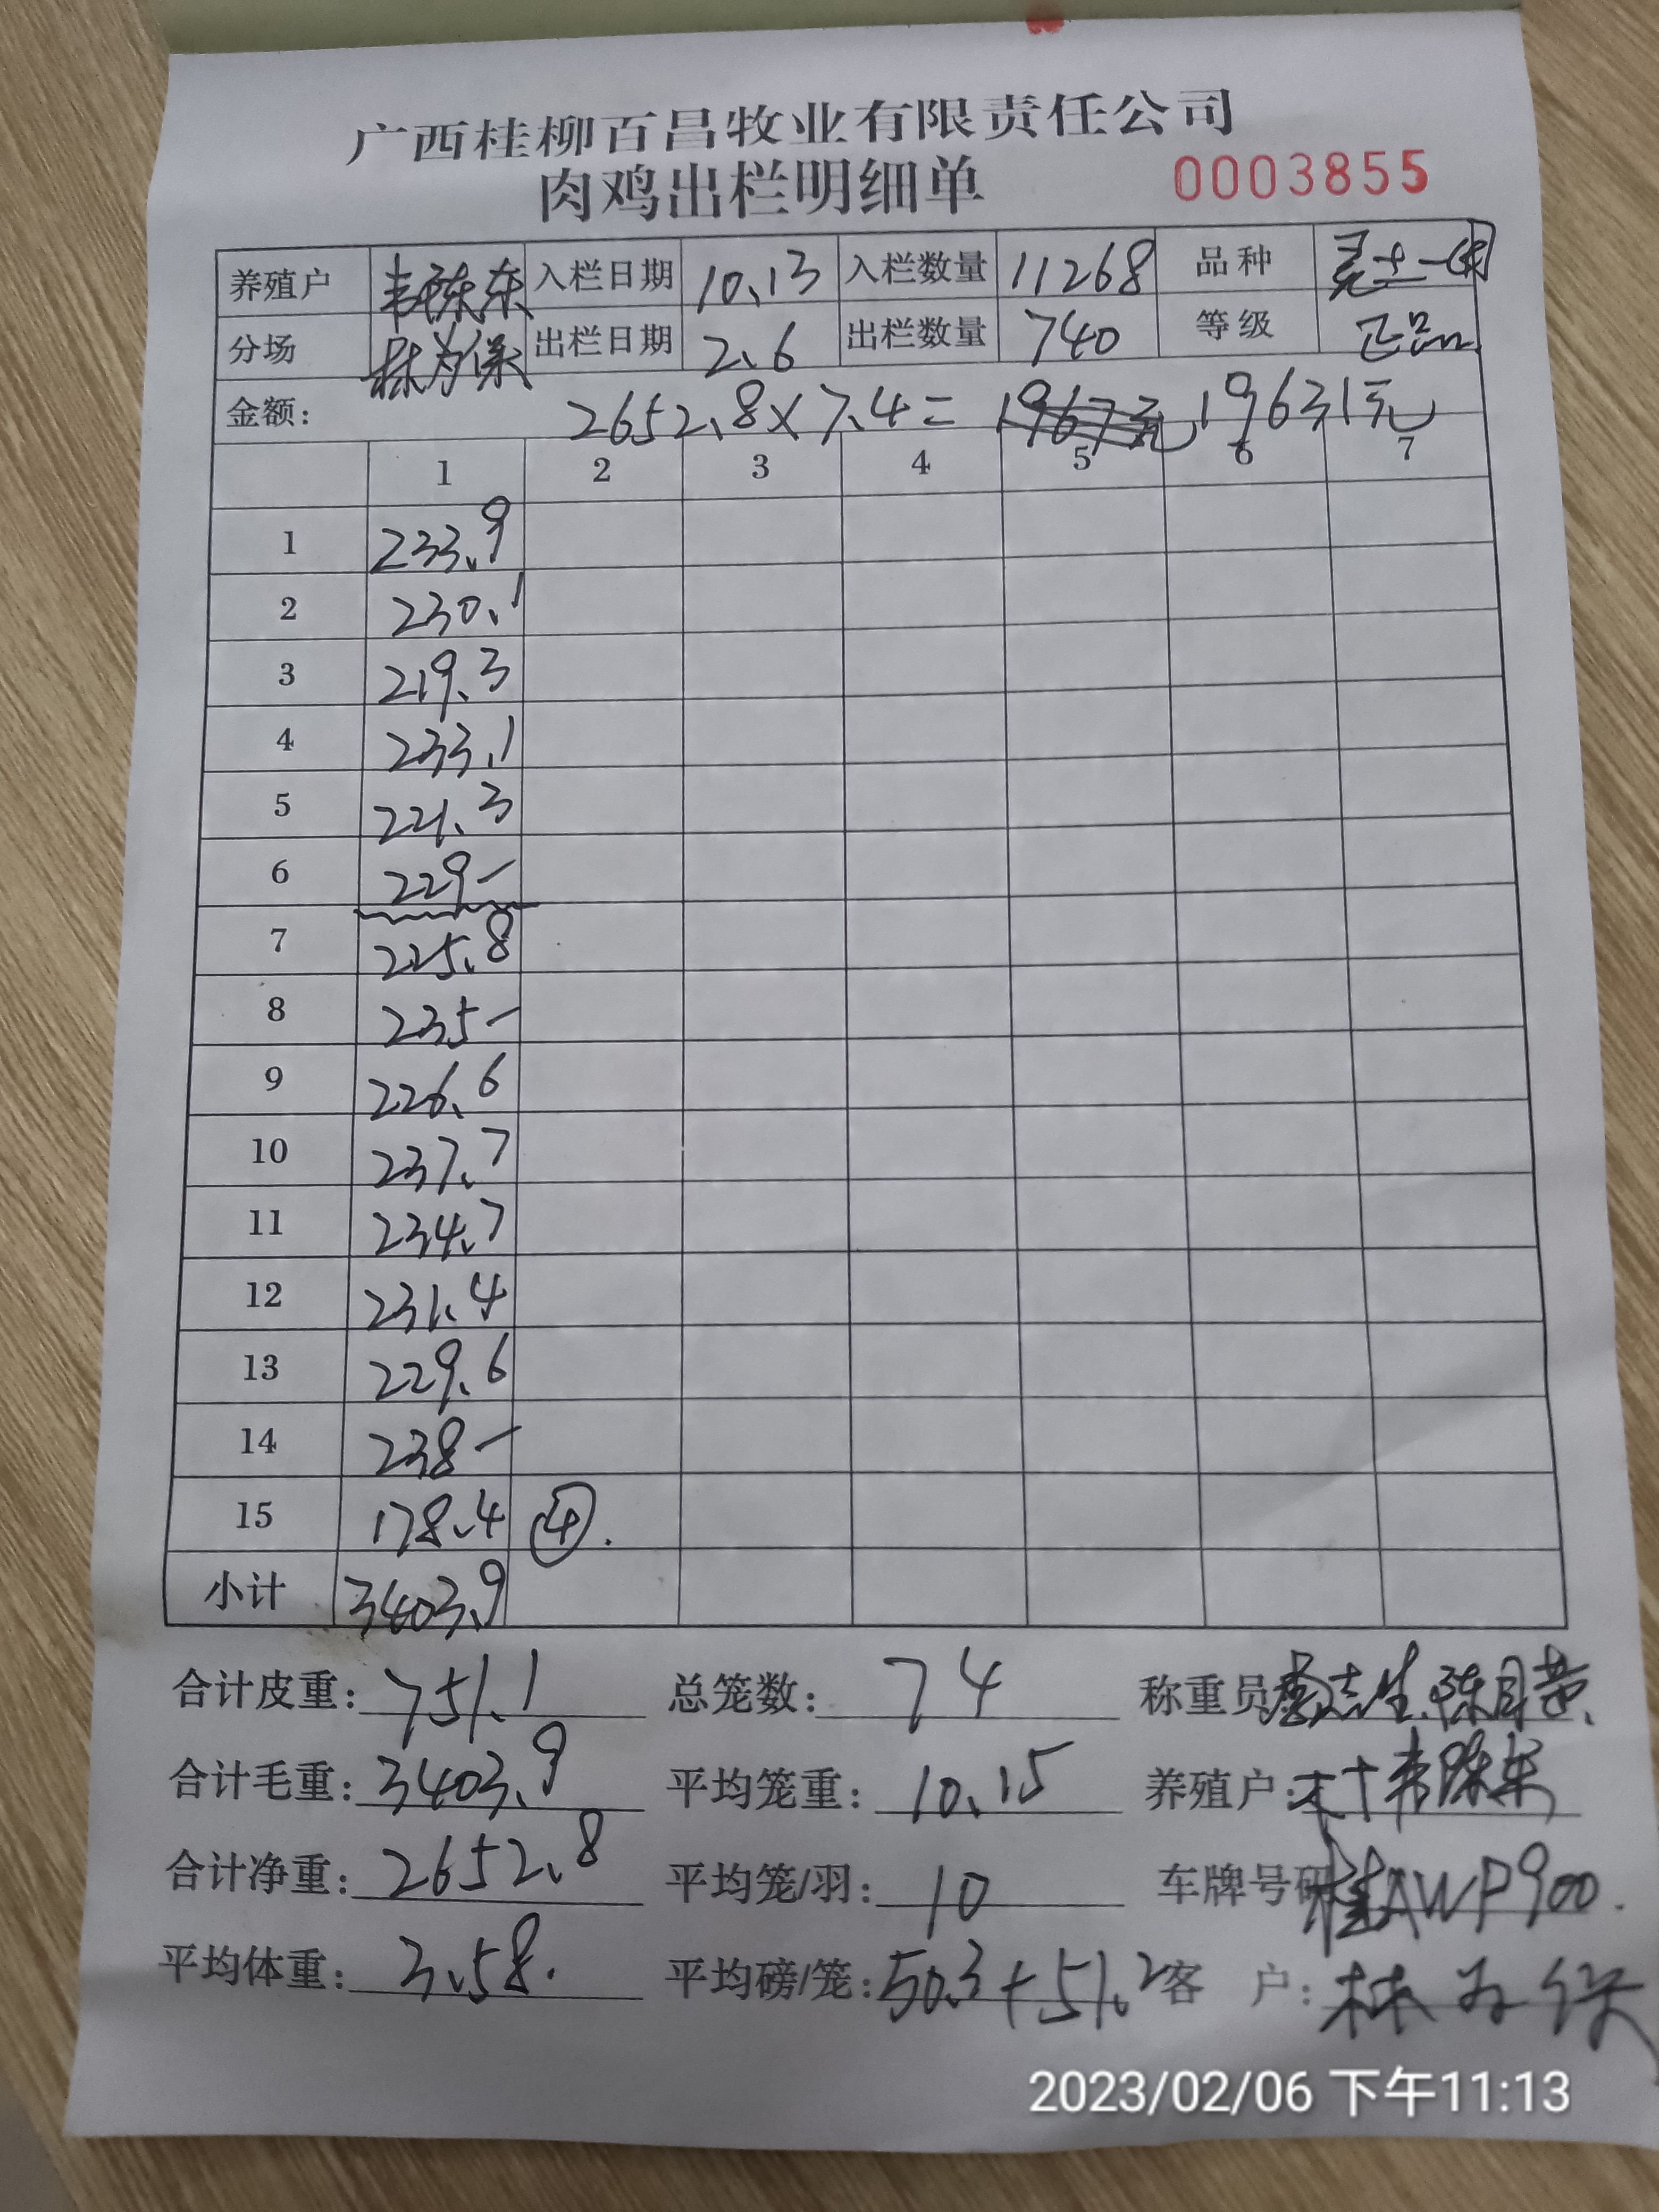 广西桂柳百昌牧业有限责任公司
肉鸡出栏明细单 0003855
养殖户 入栏日期 10.13 入栏数量 11268 品种
分场 林为保 出栏日期 2.6 出栏数量 740 等级 正品
金额: 2652.8×7.4= 19631元
1 2 3 4 5 6 7
1 233.9
2 230.1
3 219.3
4 233.1
5 221.3
6 229-
7 225.8
8 235-
9 226.6
10 237.7
11 234.7
12 231.4
13 229.6
14 238-
15 178.4 ④.
小计 3403.9
合计皮重: 751.1 总笼数: 74 称重员
合计毛重: 3403.9 平均笼重: 10.15 养殖户:
合计净重: 2652.8 平均笼/羽: 10 车牌号码 桂AWP900.
平均体重: 3.58. 平均磅/笼: 50.3+51.2 客 户: 林为保
2023/02/06 下午11:13